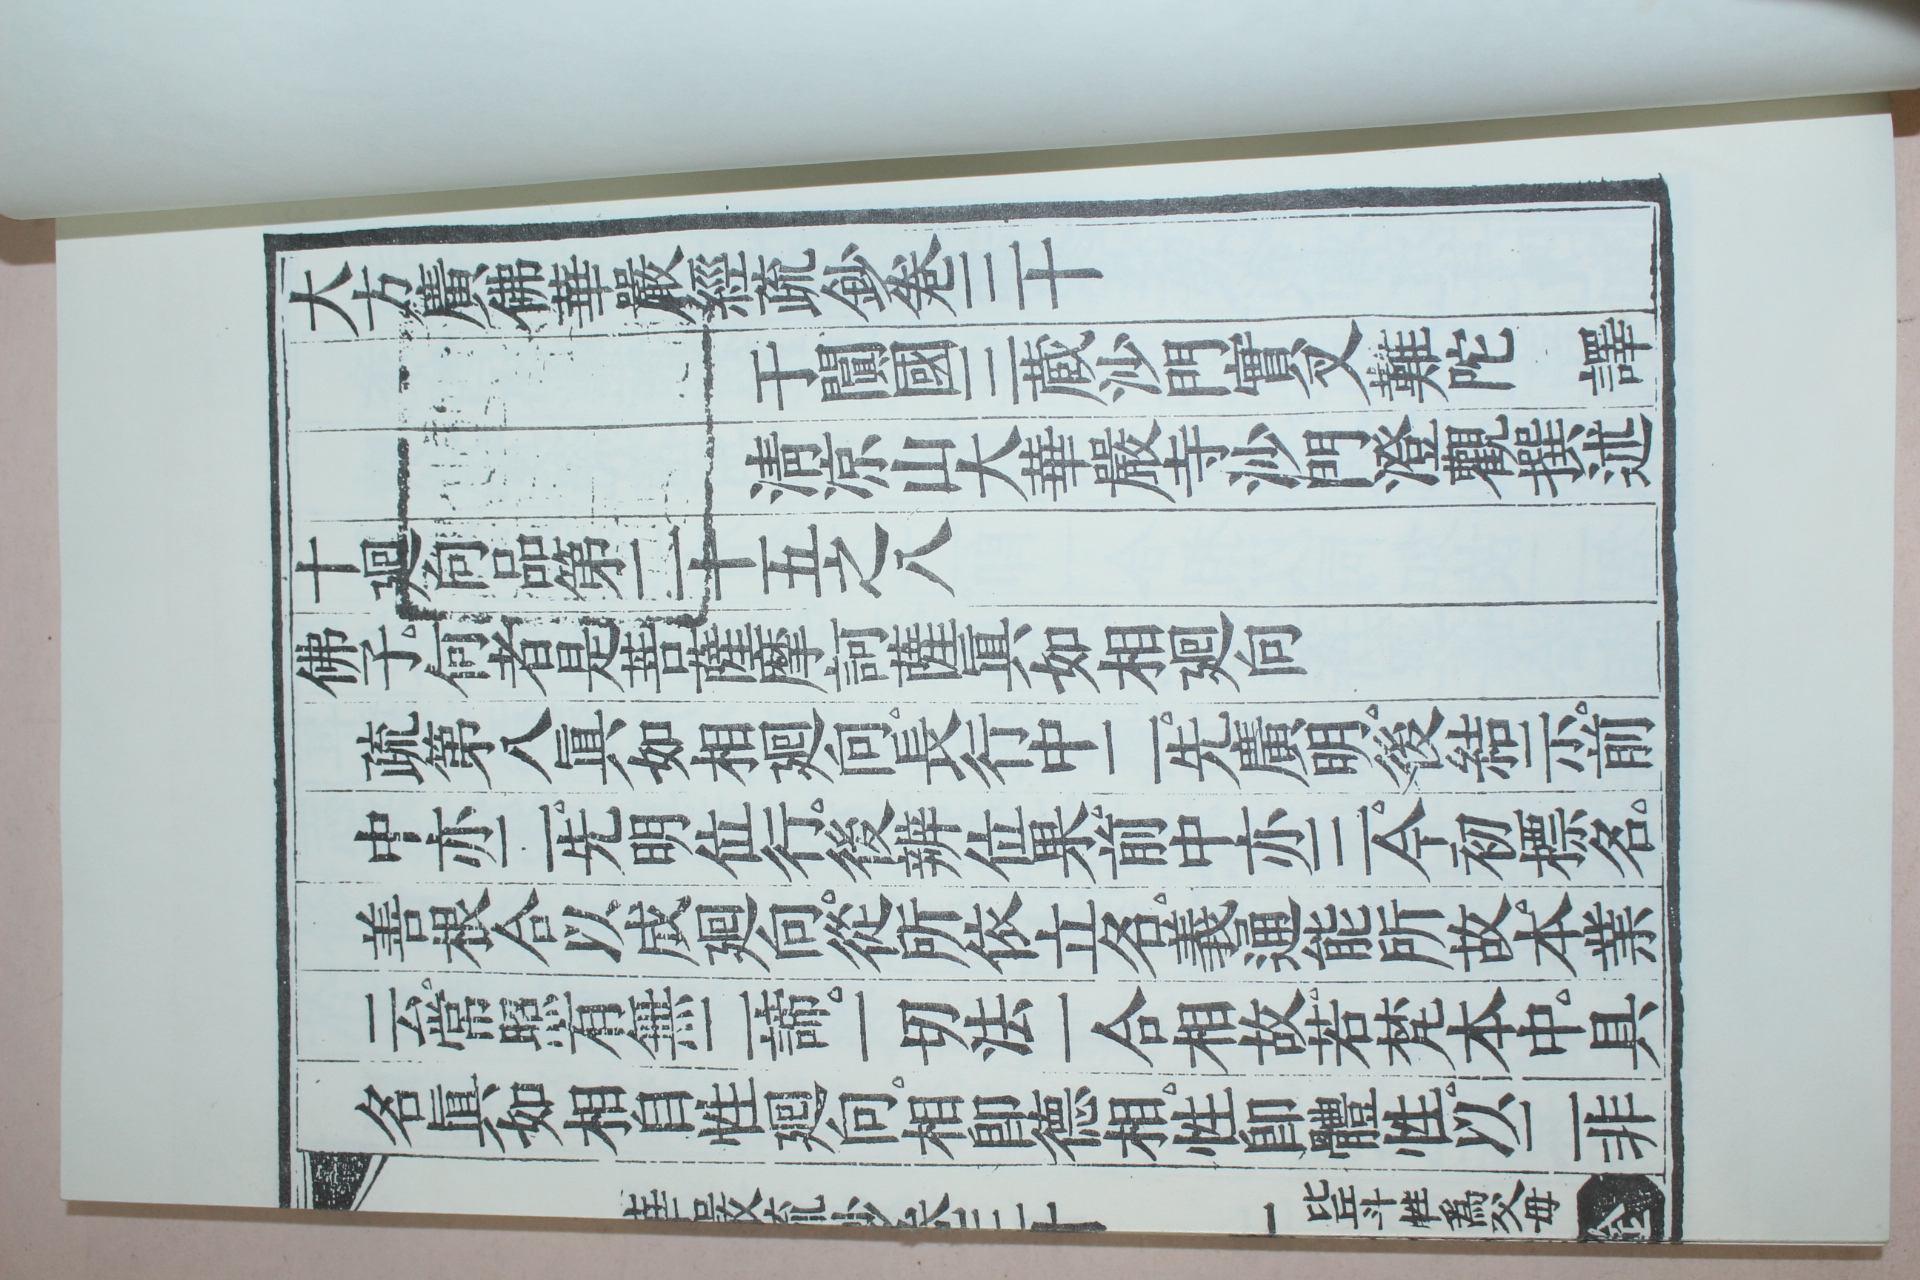 大方廣佛華嚴經疏鈔卷三十
于闐國三藏沙門實叉難陀　譯
清涼山大華嚴寺沙門澄觀撰述
十迴向品第二十五之八
佛子。何者是菩薩摩訶薩眞如相迴向
疏第八眞如相迴向。長行中二。先廣明。後結示。前
中亦二。先明位行。後辨位果。前中亦三。今初標名。
善根合以成迴向。從所依立名。義通能所故。本業
云。常照有無二諦。一切法一合相故。若梵本中。具
名眞如相自性迴向。相即德相。性即體性。以二非
華嚴疏鈔卷三十　一　比丘斗性爲父母